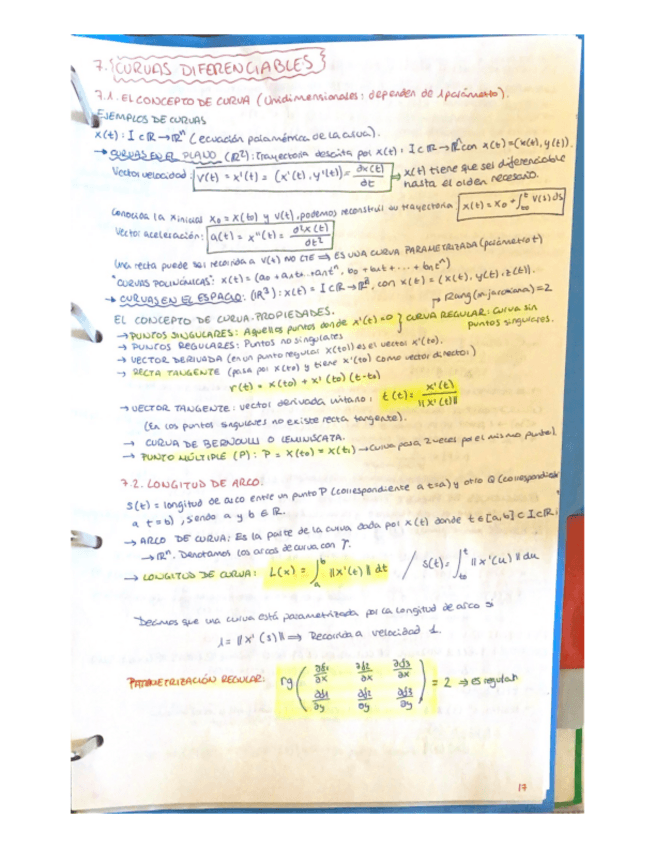 7. CURVAS DIFERENCIABLES
7.1. EL CONCEPTO DE CURVA (Unidimensionales: dependen de 1 parámetro).
EJEMPLOS DE CURVAS
x(t): I ⊂ R → Rⁿ (ecuación paramétrica de la curva).
→ CURVAS EN EL PLANO (R²): Trayectoria descrita por x(t): I ⊂ R → R² con x(t) = (x(t), y(t)).
Vector velocidad: v(t) = x'(t) = (x'(t), y'(t)) = ∂x(t)/∂t ⇒ x(t) tiene que ser diferenciable
hasta el orden necesario.
Conocida la x inicial x₀ = x(t₀) y v(t), podemos reconstruir su trayectoria x(t) = x₀ + ∫ₜ₀ᵗ v(s) ds
Vector aceleración: a(t) = x''(t) = ∂²x(t)/∂t²
Una recta puede ser recorrida a v(t) NO CTE ⇒ ES UNA CURVA PARAMETRIZADA (parámetro t)
"CURVAS POLINÓMICAS": x(t) = (a₀ + a₁t + ... + aₙtⁿ, b₀ + b₁t + ... + bₙtⁿ)
→ CURVAS EN EL ESPACIO: (R³): x(t) = I ⊂ R → R³, con x(t) = (x(t), y(t), z(t)).
→ Rang (m. jacobiana) = 2
EL CONCEPTO DE CURVA: PROPIEDADES.
→ PUNTOS SINGULARES: Aquellos puntos donde x'(t) = 0 } CURVA REGULAR: Curva sin
puntos singulares.
→ PUNTOS REGULARES: Puntos no singulares
→ VECTOR DERIVADA (en un punto regular x(t₀)) es el vector x'(t₀).
→ RECTA TANGENTE (pasa por x(t₀) y tiene x'(t₀) como vector director)
r(t) = x(t₀) + x'(t₀)(t-t₀)
→ VECTOR TANGENTE: vector derivada unitario: t(t) = x'(t)/||x'(t)||
(En los puntos singulares no existe recta tangente).
→ CURVA DE BERNOULLI O LEMNISCATA.
→ PUNTO MÚLTIPLE (P): P = x(t₀) = x(t₁) → Curva pasa 2 veces por el mismo punto.
7.2. LONGITUD DE ARCO:
S(t) = longitud de arco entre un punto P (correspondiente a t=a) y otro Q (correspondien
a t=b), siendo a y b ∈ R.
→ ARCO DE CURVA: Es la parte de la curva dada por x(t) donde t ∈ [a,b] ⊂ I ⊂ R:
→ Rⁿ. Denotamos los arcos de curva con γ.
→ LONGITUD DE CURVA: L(x) = ∫ₐᵇ ||x'(t)|| dt / S(t) = ∫ₜ₀ᵗ ||x'(u)|| du
Decimos que una curva está parametrizada por la longitud de arco si
1 = ||x'(s)|| ⇒ Recorrida a velocidad 1.
PARAMETRIZACIÓN REGULAR: rg ( ∂f1/∂x ∂f2/∂x ∂f3/∂x
∂f1/∂y ∂f2/∂y ∂f3/∂y ) = 2 ⇒ es regular
17